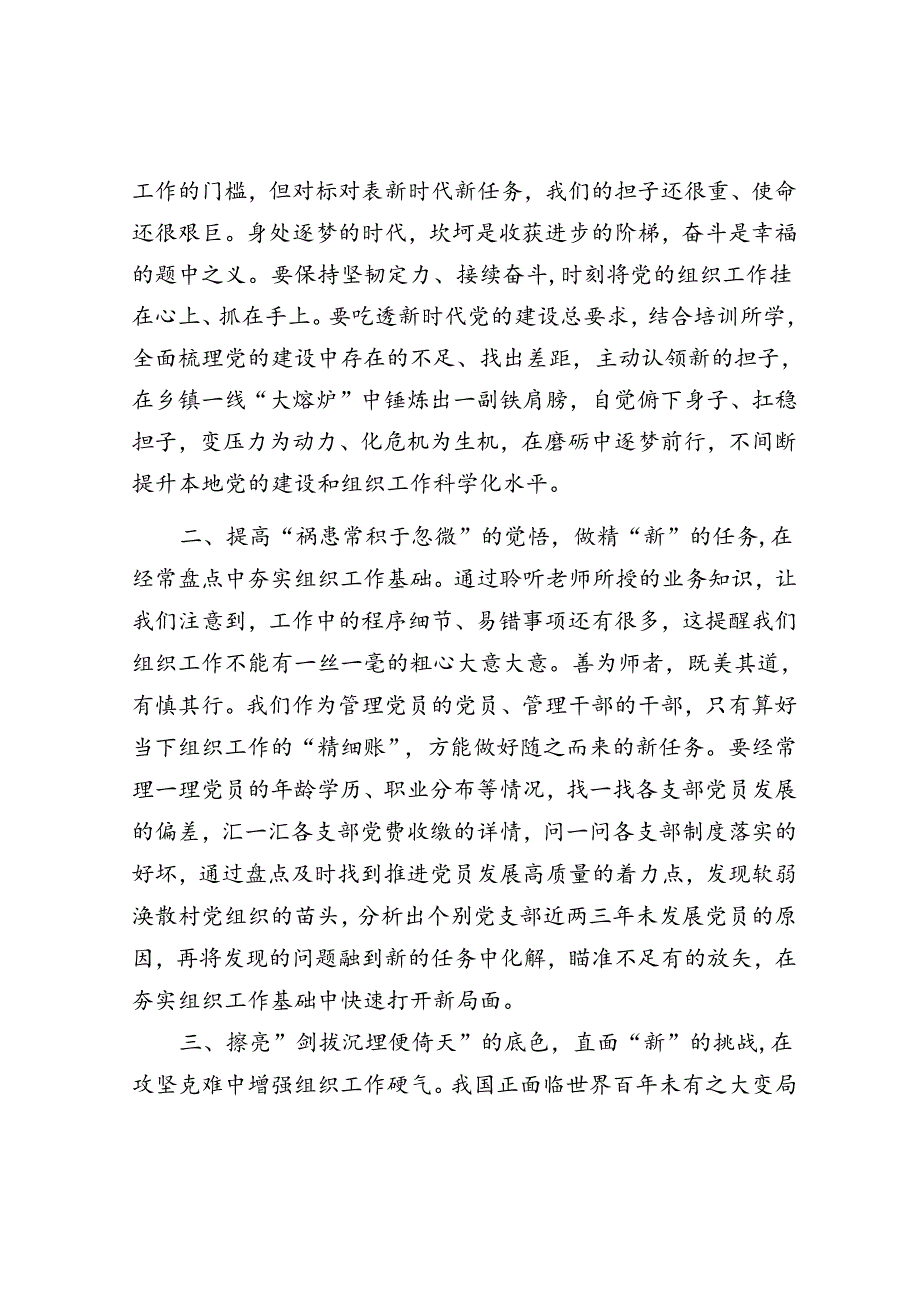 工作的门槛，但对标对表新时代新任务，我们的担子还很重、使命
还很艰巨。身处逐梦的时代，坎坷是收获进步的阶梯，奋斗是幸福
的题中之义。要保持坚韧定力、接续奋斗,时刻将党的组织工作挂
在心上、抓在手上。要吃透新时代党的建设总要求，结合培训所学，
全面梳理党的建设中存在的不足、找出差距，主动认领新的担子，
在乡镇一线“大熔炉”中锤炼出一副铁肩膀，自觉俯下身子、扛稳
担子，变压力为动力、化危机为生机，在磨砺中逐梦前行，不间断
提升本地党的建设和组织工作科学化水平。
二、提高“祸患常积于忽微”的觉悟，做精“新”的任务,在
经常盘点中夯实组织工作基础。通过聆听老师所授的业务知识，让
我们注意到，工作中的程序细节、易错事项还有很多，这提醒我们
组织工作不能有一丝一毫的粗心大意大意。善为师者，既美其道，
有慎其行。我们作为管理党员的党员、管理干部的干部，只有算好
当下组织工作的“精细账”，方能做好随之而来的新任务。要经常
理一理党员的年龄学历、职业分布等情况，找一找各支部党员发展
的偏差，汇一汇各支部党费收缴的详情，问一问各支部制度落实的
好坏，通过盘点及时找到推进党员发展高质量的着力点，发现软弱
涣散村党组织的苗头，分析出个别党支部近两三年未发展党员的原
因，再将发现的问题融到新的任务中化解，瞄准不足有的放矢，在
夯实组织工作基础中快速打开新局面。
三、擦亮”剑拔沉埋便倚天”的底色，直面“新”的挑战,在
攻坚克难中增强组织工作硬气。我国正面临世界百年未有之大变局